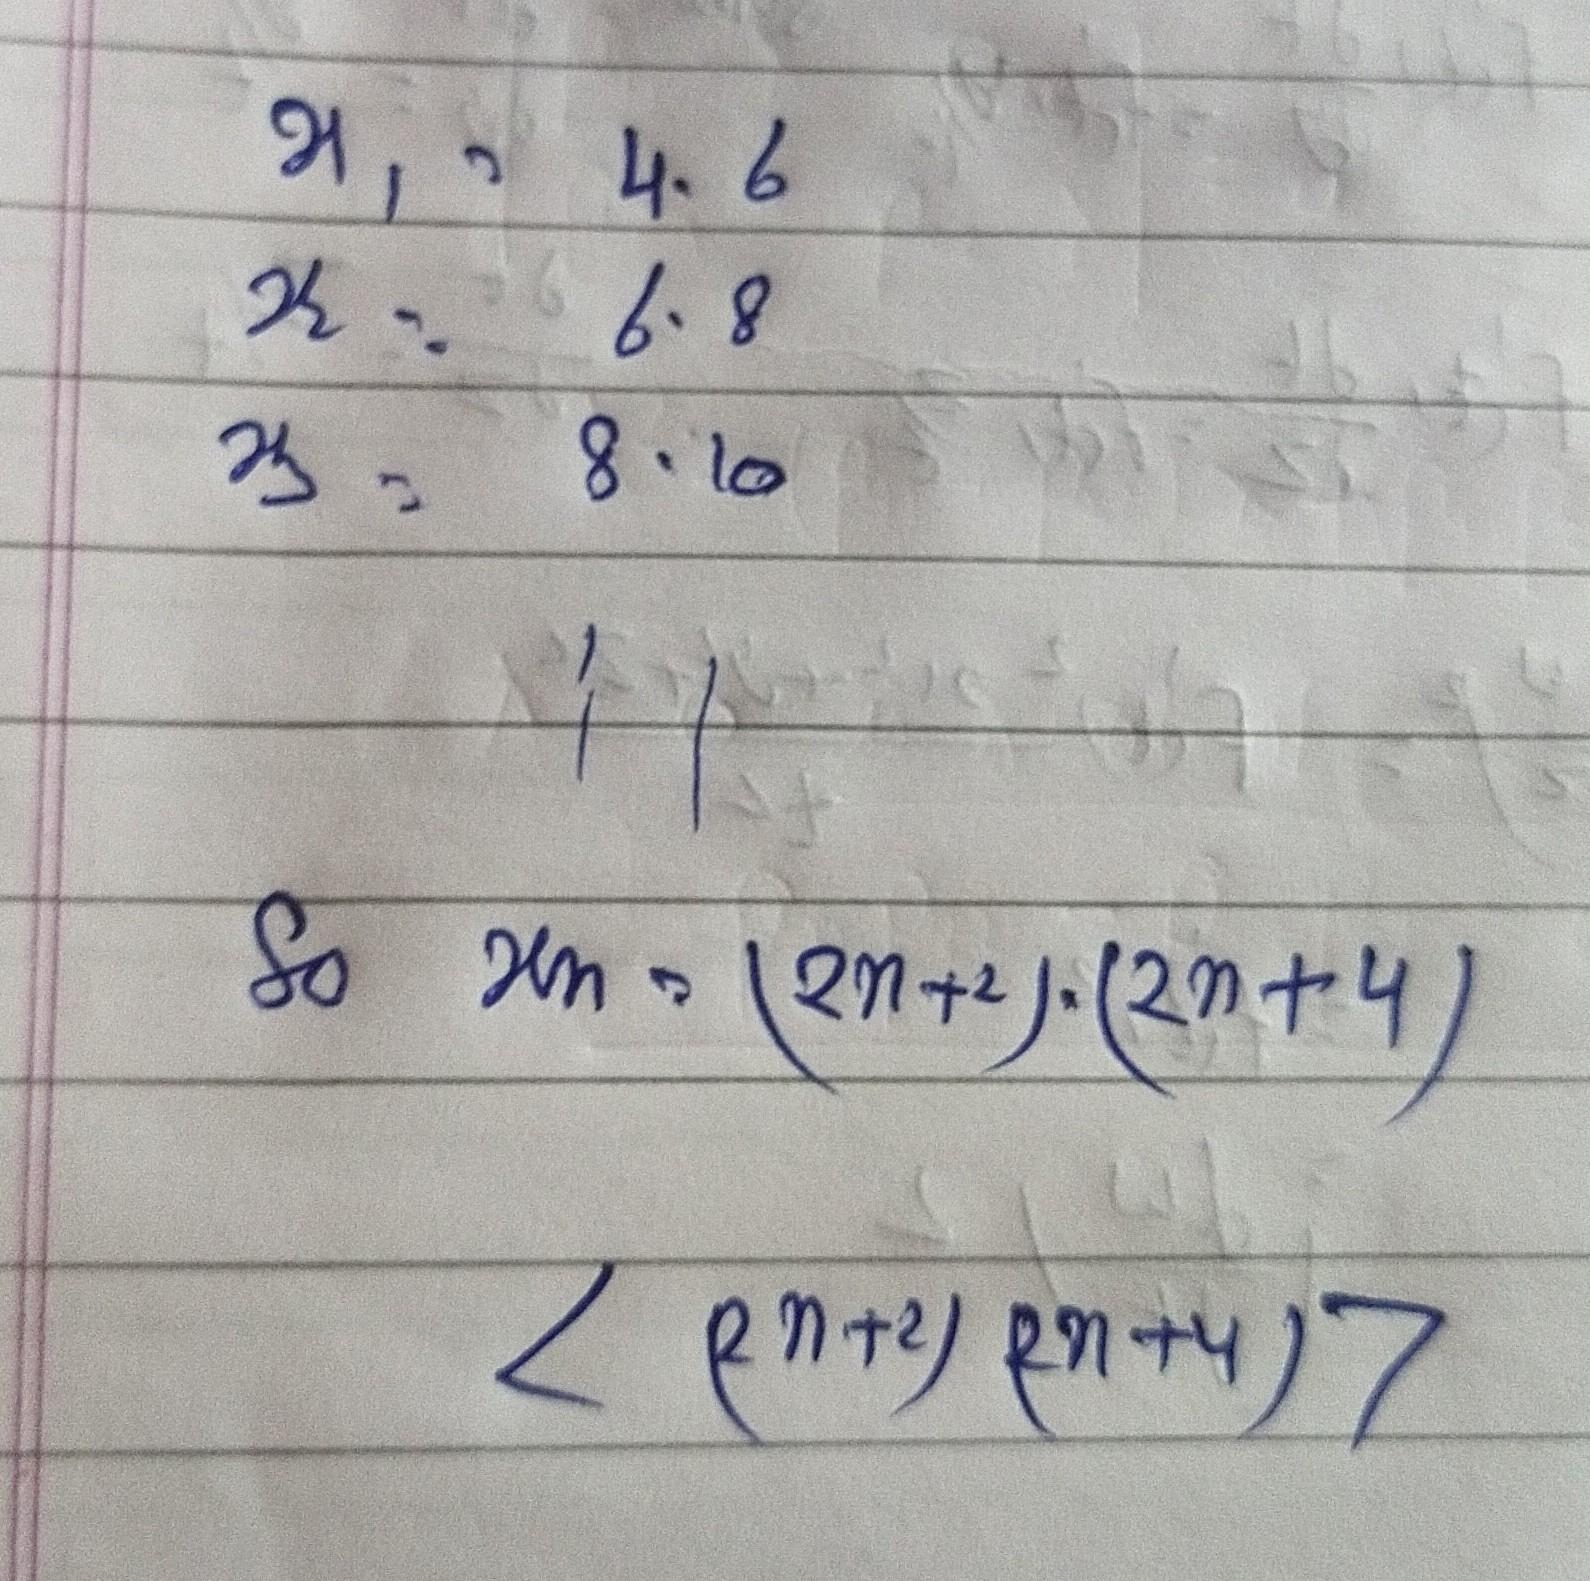 x₁ = 4. 6
x₂ = 6. 8
x₃ = 8. 10
So xn = (2n+2).(2n+4)
< (2n+2) (2n+4) >